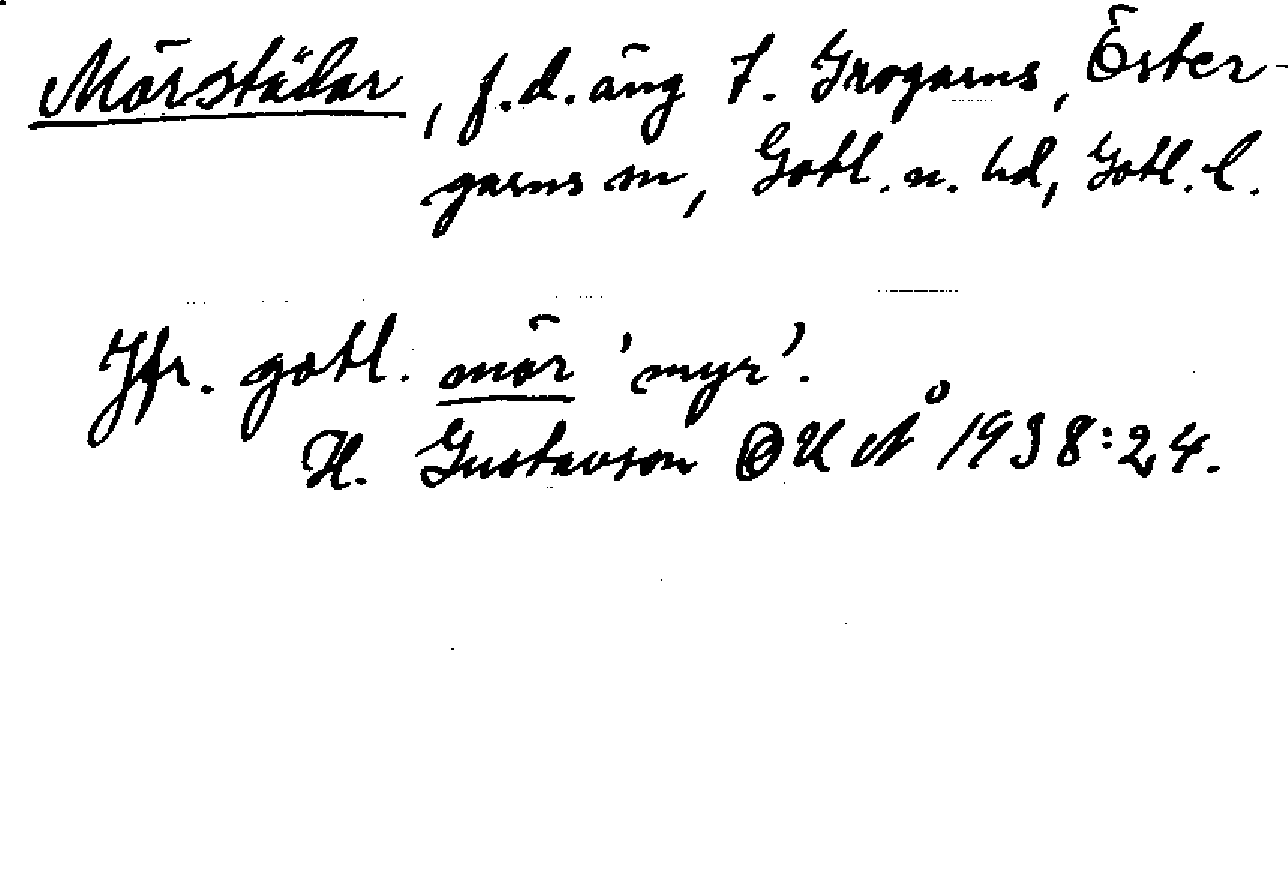 Mörstädar, f.d. äng t. Grogarns, Öster-
garns sn, Gotl. n. hd, Gotl. l.
Jfr. gotl. mör 'myr'.
H. Gustavson OUÅ 1938:24.